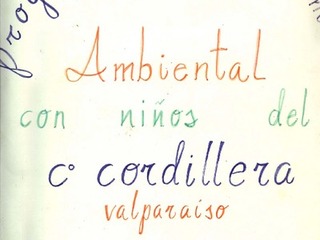 prog
Ambiental
con niños del
c° cordillera
valparaiso